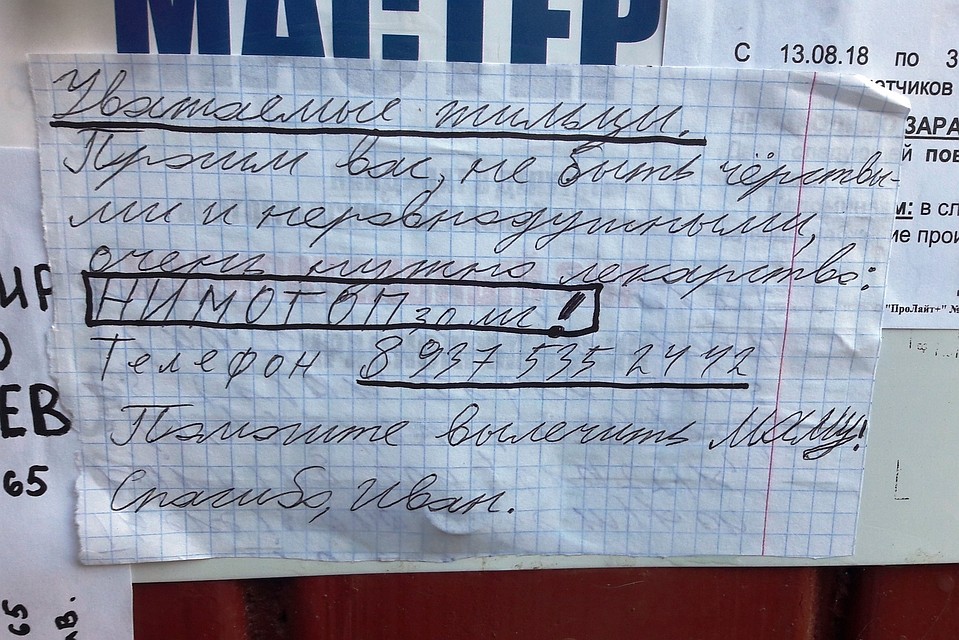 МАСТЕР
С 13.08.18 по 3
Уважаемые жильцы.
Просим вас, не быть чёрствы-
ми и неравнодушными,
очень нужно лекарство:
НИМОТОП 30 мг!
Телефон 8 937 535 24 42
Помогите вылечить Маму!
Спасибо, Иван.
етчиков
ЗАРА
й пов
м: в сл
ие прои
"ПроЛайт+" №
ЕВ
65
65